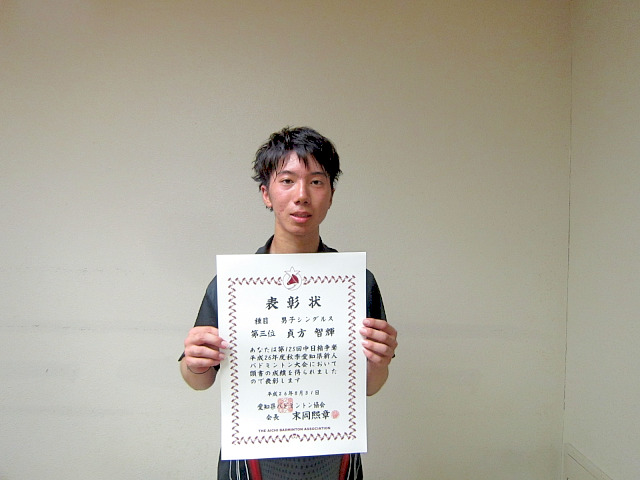 表彰状
種目 男子シングルス
第三位 貞方 智輝
あなたは第125回中日招争奪
平成26年度秋季愛知県新人
バドミントン大会において
頭書の成績を得られました
ので表彰します
平成26年8月31日
愛知県バドミントン協会
会長 末岡熙章
THE AICHI BADMINTON ASSOCIATION